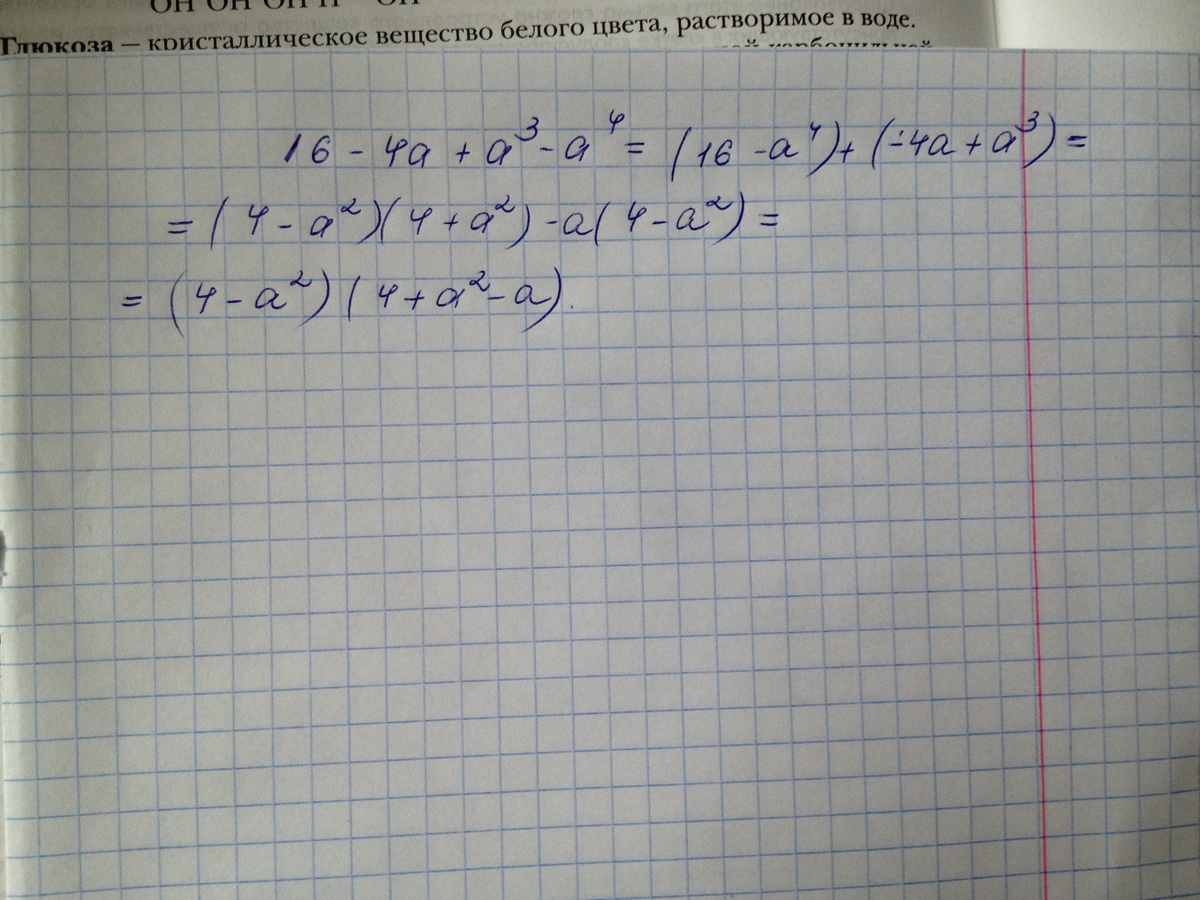 OH OH OH H OH
Глюкоза — кристаллическое вещество белого цвета, растворимое в воде.
16 - 4a + a³ - a⁴ = (16 - a⁴) + (-4a + a³) =
= (4 - a²)(4 + a²) - a(4 - a²) =
= (4 - a²)(4 + a² - a).